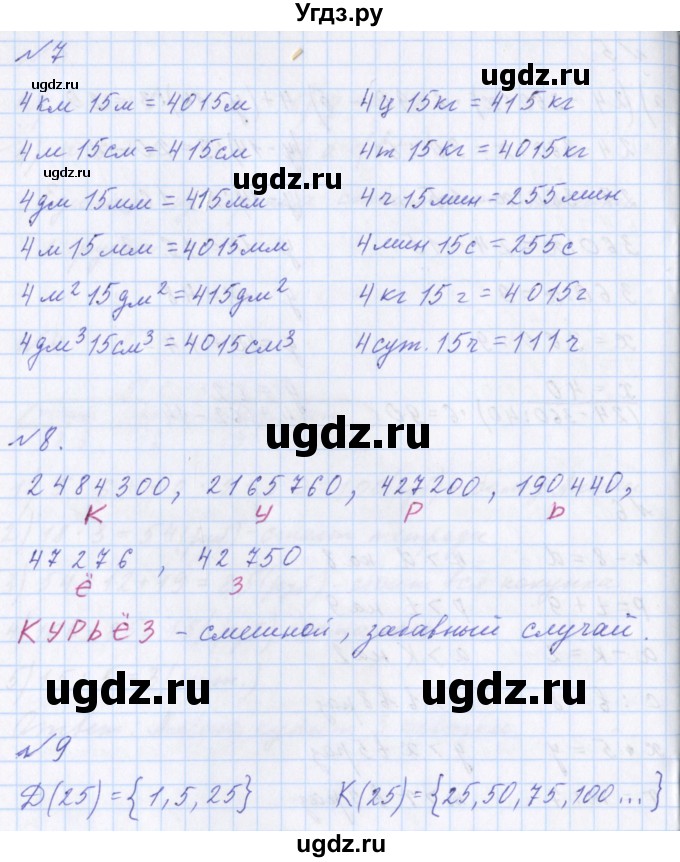 Угдз.ру
№7
ugdz.ru
4 км 15 м = 4015 м 4 ц 15 кг = 415 кг
4 м 15 см = 415 см 4 т 15 кг = 4015 кг
ugdz.ru ugdz.ru
4 дм 15 мм = 415 мм 4 ч 15 мин = 255 мин
4 м 15 мм = 4015 мм 4 мин 15 с = 255 с
ugdz.ru
4 м² 15 дм² = 415 дм² 4 кг 15 г = 4015 г
4 дм³ 15 см³ = 4015 см³ 4 сут. 15 ч = 111 ч
ugdz.ru
№8.
2484300, 2165760, 427200, 190440,
К У Р Ь
47276, 42750
Ё З
КУРЬЁЗ - смешной, забавный случай.
ugdz.ru ugdz.ru
№9
Д(25) = {1, 5, 25} К(25) = {25, 50, 75, 100...}
ugdz.ru